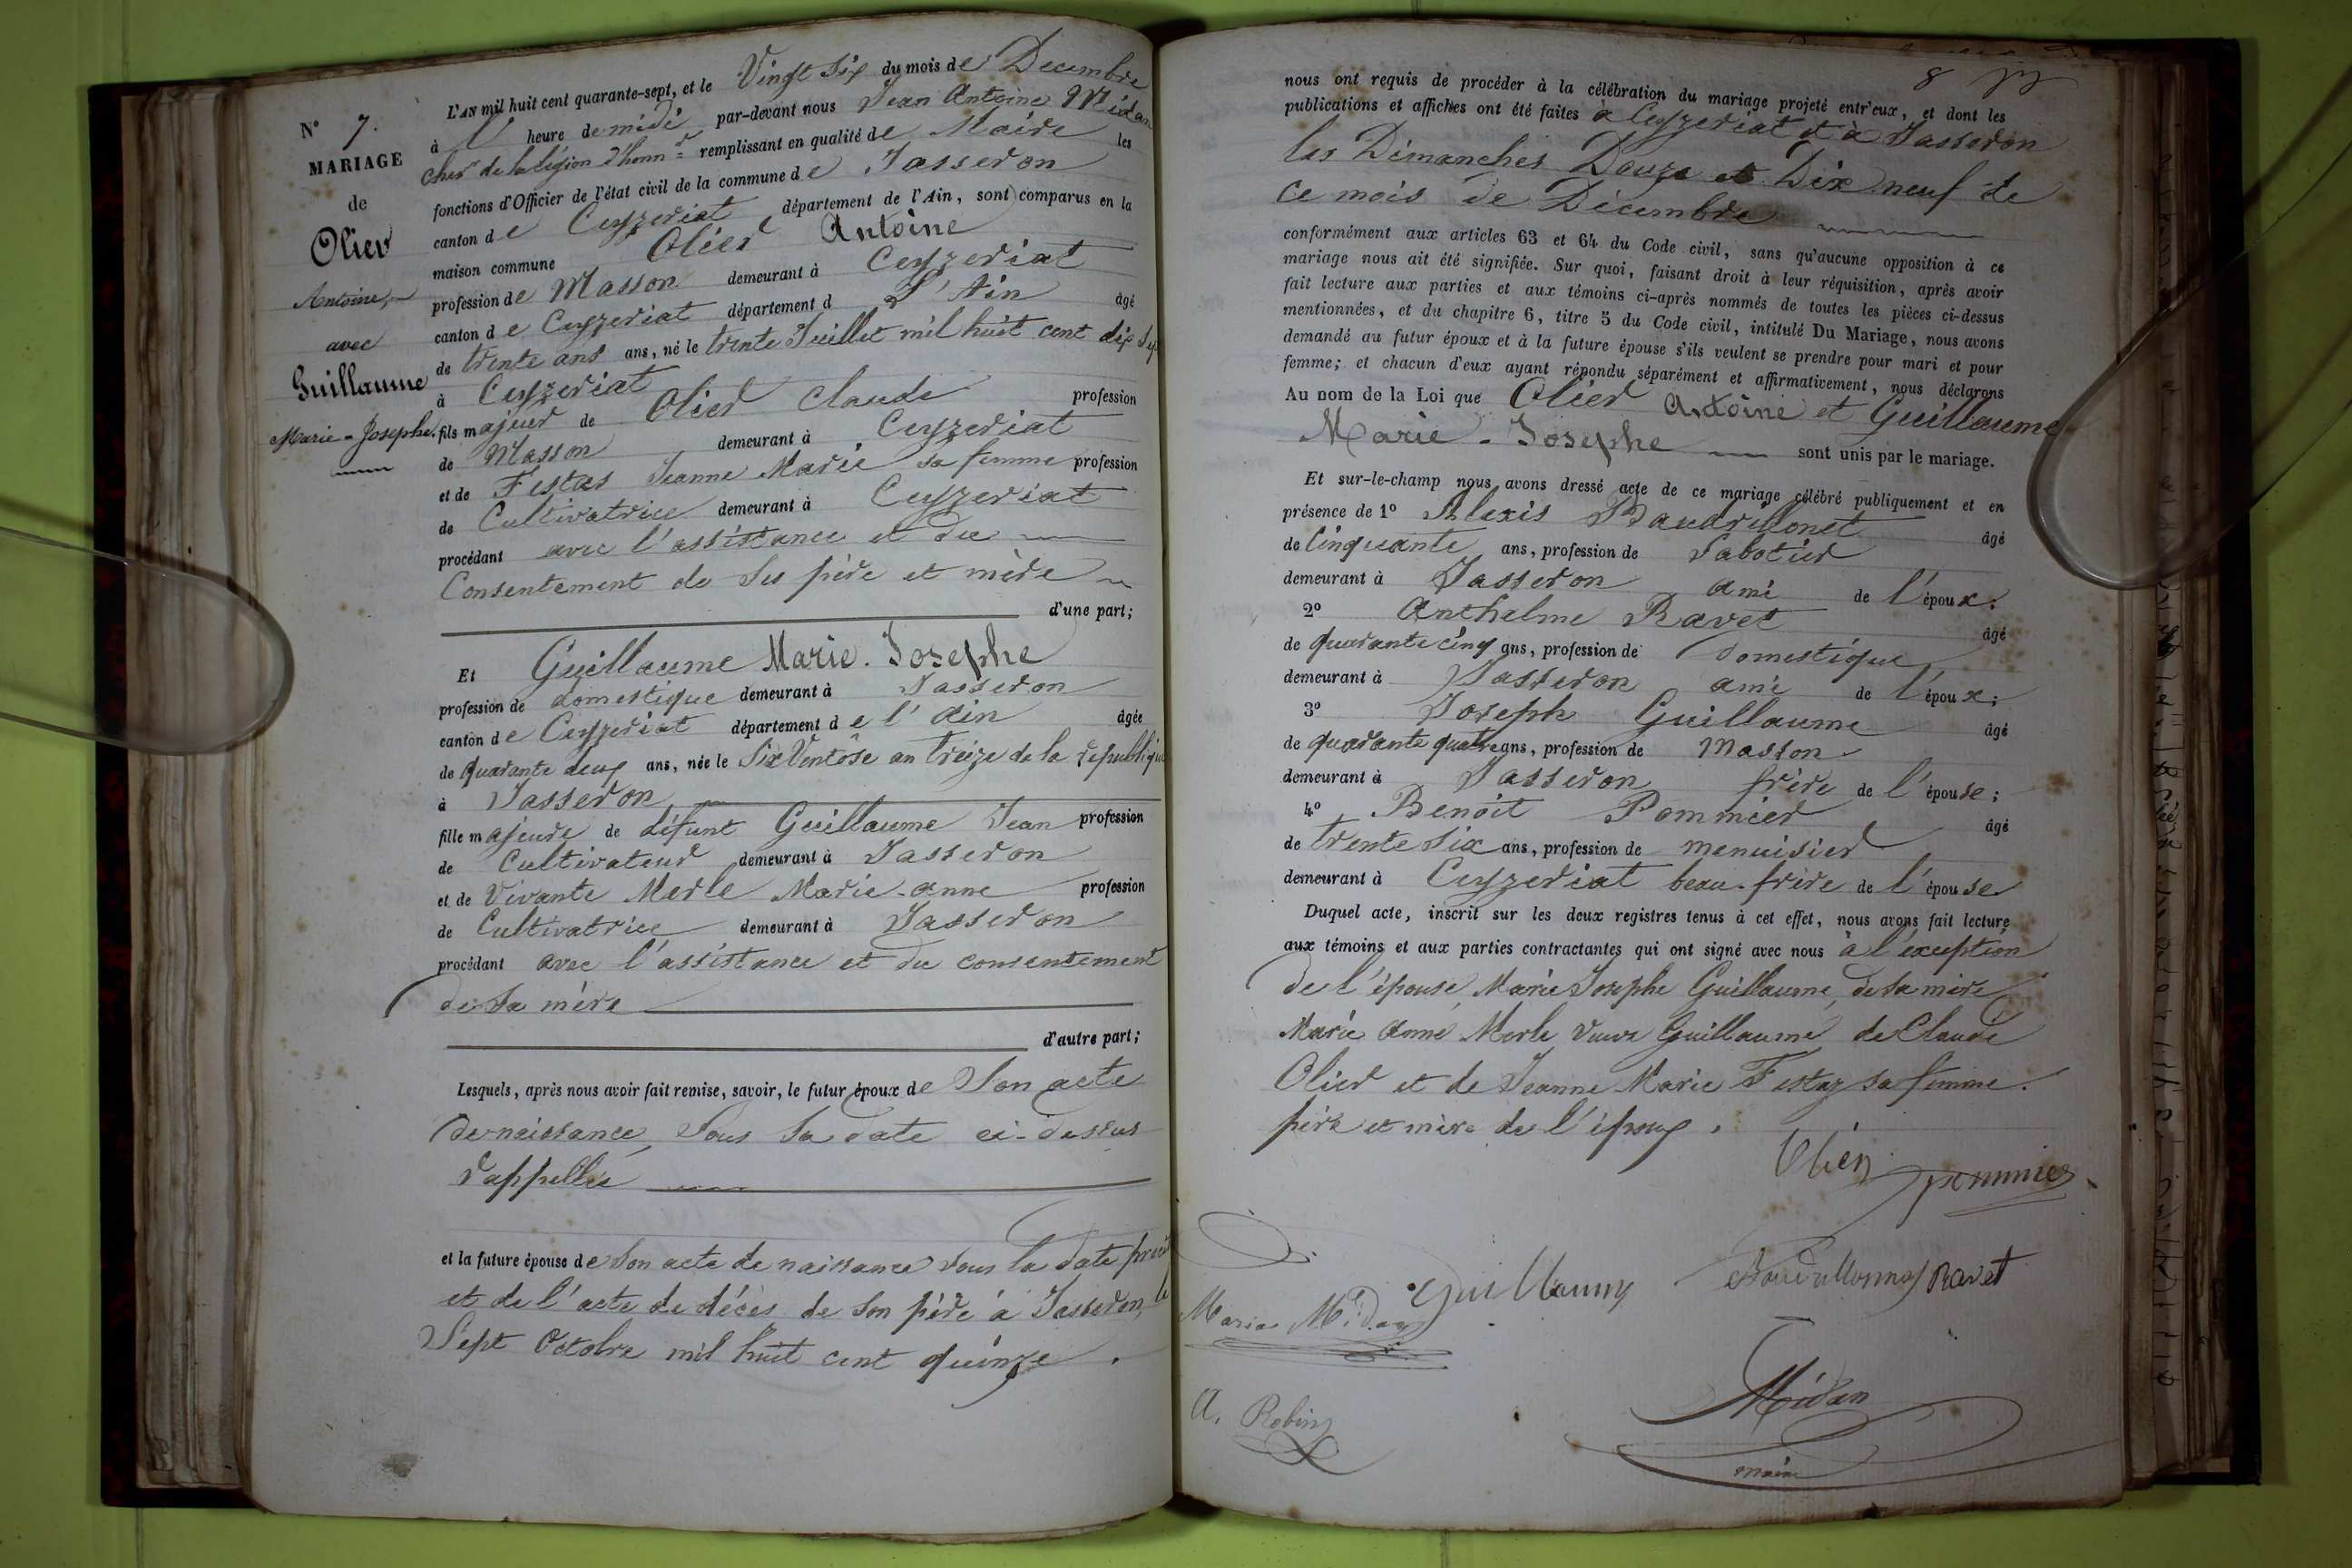 N° 7.
MARIAGE
de
Olier
Antoine,
avec
Guillaume
Marie-Josephe.
L'AN mil huit cent quarante-sept, et le Vingt Six du mois de Decembre
à l' heure de midi par-devant nous Jean Antoine Midan
cher de la légion d'honnr remplissant en qualité de Maire les
fonctions d'Officier de l'état civil de la commune de Jasseron
canton de Ceyzeriat département de l'Ain, sont comparus en la
maison commune Olier Antoine
profession de Masson demeurant à Ceyzeriat
canton de Ceyzeriat département d L'Ain âgé
de trente ans ans, né le trente Juillet mil huit cent dix Sept
à Ceyzeriat
fils majeur de Olier Claude profession
de Masson demeurant à Ceyzeriat
et de Festas Jeanne Marie sa femme profession
de Cultivatrice demeurant à Ceyzeriat
procédant avec l'assistance et du
Consentement de Ses père et mère
d'une part;
Et Guillaume Marie-Josephe
profession de domestique demeurant à Jasseron
canton de Ceyzeriat département de l'Ain âgée
de quarante deux ans, née le Six Ventôse an treize de la republique
à Jasseron
fille majeure de défunt Guillaume Jean profession
de Cultivateur demeurant à Jasseron
et de Vivante Merle Marie-anne profession
de Cultivatrice demeurant à Jasseron
procédant avec l'assistance et du consentement
de Sa mère
d'autre part;
Lesquels, après nous avoir fait remise, savoir, le futur époux de Son acte
de naissance Sous Sa date ci-dessus
rappellée
et la future épouse de Son acte de naissance sous la date
et de l'acte de décès de son père à Jasseron, le
Sept Octobre mil huit cent quinze.
8
nous ont requis de procéder à la célébration du mariage projeté entr'eux, et dont les
publications et affiches ont été faites à Ceyzeriat et à Jasseron
les Dimanches Douze et Dix neuf de
ce mois de Décembre
conformément aux articles 63 et 64 du Code civil, sans qu'aucune opposition à ce
mariage nous ait été signifiée. Sur quoi, faisant droit à leur réquisition, après avoir
fait lecture aux parties et aux témoins ci-après nommés de toutes les pièces ci-dessus
mentionnées, et du chapitre 6, titre 5 du Code civil, intitulé Du Mariage, nous avons
demandé au futur époux et à la future épouse s'ils veulent se prendre pour mari et pour
femme; et chacun d'eux ayant répondu séparément et affirmativement, nous déclarons
Au nom de la Loi que Olier Antoine et Guillaume
Marie-Josephe sont unis par le mariage.
Et sur-le-champ nous avons dressé acte de ce mariage célébré publiquement et en
présence de 1° Alexis Baudrillonet âgé
de Cinquante ans, profession de Sabotier
demeurant à Jasseron ami de l'époux.
2° Anthelme Ravet âgé
de quarante cinq ans, profession de domestique
demeurant à Jasseron ami de l'époux;
3° Joseph Guillaume âgé
de quarante quatre ans, profession de Masson
demeurant à Jasseron frère de l'épouse;
4° Benoit Pommier âgé
de trente six ans, profession de menuisier
demeurant à Ceyzeriat beau-frère de l'épouse
Duquel acte, inscrit sur les deux registres tenus à cet effet, nous avons fait lecture
aux témoins et aux parties contractantes qui ont signé avec nous à l'exception
de l'épouse Marie Josephe Guillaume, de sa mère
Marie Anne Merle veuve Guillaume de Claude
Olier et de Jeanne Marie Festaz sa femme.
père et mère de l'époux.
Olier pommier
Guillaume Ravet
Maria Midan
Midan
A. Robin
maire